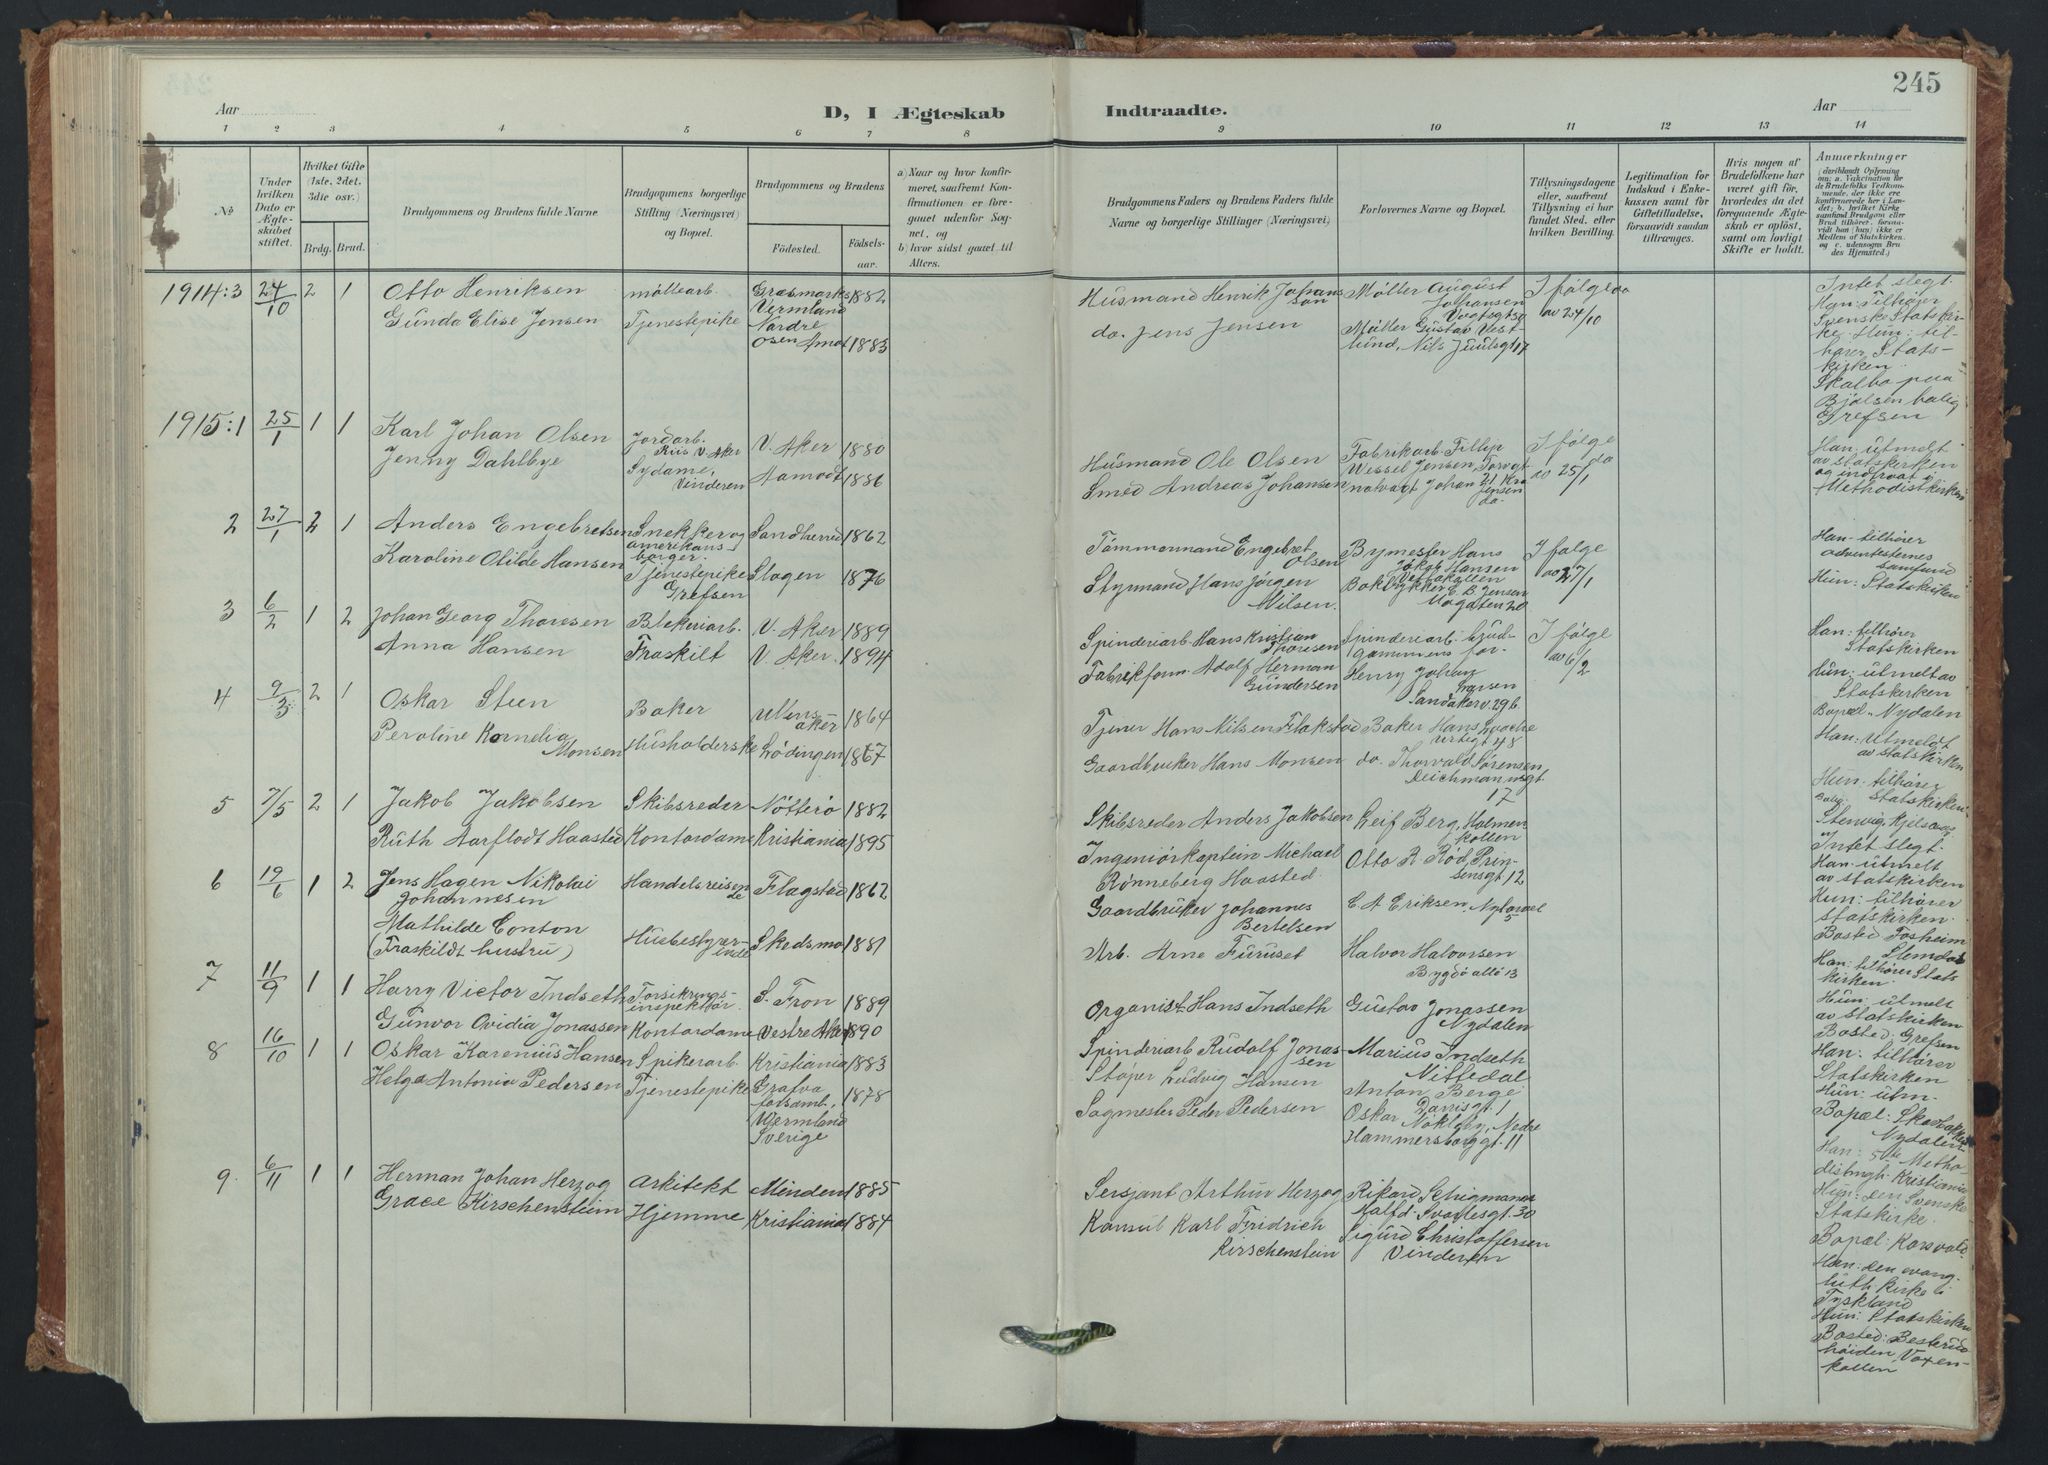 245
Aar
D, I Ægteskab
Indtraadte.
Aar
1 2 3 4 5 6 7 8 9 10 11 12 13 14
No
Under hvilken Dato er Ægteskabet stiftet.
Hvilket Gifte (1ste, 2det, 3die osv.)
Brdg. Brud.
Brudgommens og Brudens fulde Navne
Brudgommens borgerlige Stilling (Næringsvei) og Bopæl.
Brudgommens og Brudens
Födested.
Födselsaar.
a) Naar og hvor konfirmeret, saafremt Konfirmationen er foregaaet udenfor Sognet, og
b) hvor sidst gaaet til Alters.
Brudgommens Faders og Brudens Faders fulde Navne og borgerlige Stillinger (Næringsvei)
Forlovernes Navne og Bopæl.
Tillysningsdagene eller, saafremt Tillysning ei har fundet Sted, efter hvilken Bevilling.
Legitimation for Indskud i Enkekassen samt for Giftetilladelse, forsaavidt saadan tiltrænges.
Hvis nogen af Brudefolkene har været gift før, hvorledes da det foregaaende Ægteskab er oplöst, samt om lovligt Skifte er holdt.
Anmærkninger
1914:3 24/10 2 1
Otto Henriksen
Gunda Elise Jensen
møllearb.
Tjenestepike
Græsmarks Vermland 1882
Nordre Osen Amot 1883
Husmand Henrik Johansson
do. Jens Jensen
Møller August Johansen Vogtsgt 50
Møller Gustav Vestlund, Nils Juulsgt 17
I følge av 24/10
Intet slegt.
Han: Tilhører Svenske Statskirke. Hun: tilhører Statskirken.
Skal bo paa Bjølsen Grefsen
1915:1 25/1 1 1
Karl Johan Olsen
Jenny Dahlbye
Jordarb. Riis V. Aker
Sydame, Vinderen
V. Aker 1880
Aamodt 1886
Husmand Ole Olsen
Smed Andreas Johansen
Fabrikarb. Fillip Wessel Jensen, Torvgt 21 Kra
Johan Jensen do.
I følge av 25/1
Han: utmelt av statskirken og indtraat i Methodistkirken
2 27/1 2 1
Anders Engebretsen
Karoline Otilde Hansen
Snekker og amerikansk borger.
Tjenestepike Grefsen
Sandherred 1862
Slagen 1876
Tömmermand Engebret Olsen
Styrmand Hans Jørgen Nilsen.
Bymester Hans Jakob Hansen Vettakollen
I følge av 27/1
Han tilhører adventesternes samfund
Hun: Statskirken
3 6/2 1 2
Johan Georg Thoresen
Anna Hansen
Blekeriarb.
Fraskilt
V. Aker 1889
V. Aker. 1894
Spinderiarb Hans Kristian Thoresen
Fabrikform. Adolf Herman Gundersen
Spinderiarb. brudgommens far
Henry Johan Larsen Sandakerv. 29 b
I følge av 6/2
Han: tilhører Statskirken
Hun: utmelt av Statskirken
Bopæl: Nydalen
4 9/3 2 1
Oskar Steen
Peroline Kornelia Monsen
Baker
Husholderske
Ullensaker 1864
Lödingen 1867
Tjener Hans Nilsen Flakstad
Gaardbruker Hans Monsen
Baker Hans
do. Thorvald Sørensen Deichmansgt 17
Han: utmeldt av statskirken
Hun: tilhører statskirken
Bolig: Stenvig, Kjelsaas
5 7/5 2 1
Jakob Jakobsen
Ruth Aarflodt Haasted
Skibsreder
Kontordame
Nötterö 1882
Kristiania 1895
Skibsreder Anders Jakobsen
Ingeniörkaptein Michael Rønneberg Haasted.
Leif Berg, Holmenkollen
Otto R. Röd, Prinsensgt 12
Intet slegt.
Han: utmelt av statskirken
Hun: tilhører statskirken.
6 19/6 1 2
Jens Hagen Nikolai Johannesen
Mathilde Conton (Fraskildt hustru)
Handelsreisende
Husbestyrerinde
Flagstad 1862
Skedsmo 1881
Gaardbruker Johannes Bertelsen
Arb. Arne Furuset
C. A. Eriksen
Halvor Halvorsen Bygdö allé 13
Bosted Fosheim Slemdal
Han: tilhører Statskirken.
Hun: utmelt av statskirken
7 11/9 1 1
Harry Victor Indseth
Gunvor Ovidia Jonassen
Forsikringsinspektör
Kontordame
S. Fron 1889
Vestre Aker 1890
Organist Hans Indseth
Spinderiarb Rudolf Jonassen
Gustav Jonassen Nydalen
Marius Indseth Nittedal
Bosted: Grefsen
Han: tilhører Statskirken
Hun: utm.
8 16/10 1 1
Oskar Karenius Hansen
Helga Antonia Pedersen
Spikerarb.
Tjenestepike
Kristiania 1883
Grafva forsamb. Vermland Sverige 1878
Støper Ludvig Hansen
Sagmester Peder Pedersen
Anton Berge Darresgt. 1
Oskar Nökleby, Nedre Hammersborggt. 11
Bopæl: Skovbakken Nydalen
Han: 5te Methodistmgh. Kristiania
Hun: den Svenske Statskirke.
9 6/11 1 1
Herman Johan Herzog
Grace Kirschenstein
Arkitekt
Hjemme
Minden 1885
Kristiania 1884
Sersjant Arthur Herzog
Konsul Karl Fridrich Kirschenstein
Rikard Schigmann
Sigurd Christoffersen Vinderen
Bopæl: Korsvold.
Han: den evang. luth kirke i Tyskland
Hun: Statskirken
Bosted: Besterudhöiden, Voxenkollen